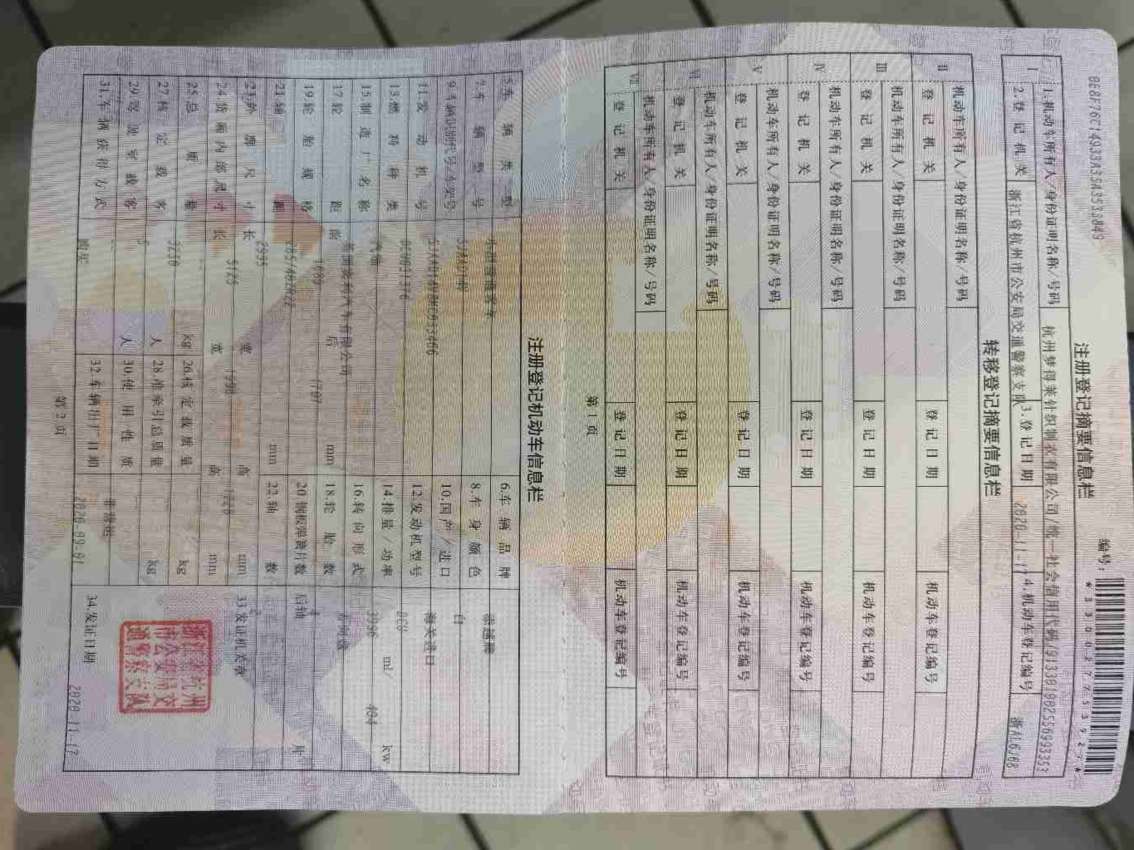 BE8F76C14933A35A353S849
编号:
注册登记摘要信息栏
I
1.机动车所有人/身份证明名称/号码
杭州梦得莱针织制衣有限公司/统一社会信用代码/
2.登记机关
浙江省杭州市公安局交通警察支队
3.登记日期
2020-11-17
4.机动车登记编号
浙AL6J68
转移登记摘要信息栏
II
机动车所有人/身份证明名称/号码
登记机关
登记日期
机动车登记编号
III
机动车所有人/身份证明名称/号码
登记机关
登记日期
机动车登记编号
IV
机动车所有人/身份证明名称/号码
登记机关
登记日期
机动车登记编号
V
机动车所有人/身份证明名称/号码
登记机关
登记日期
机动车登记编号
VI
机动车所有人/身份证明名称/号码
登记机关
登记日期
机动车登记编号
VII
机动车所有人/身份证明名称/号码
登记机关
登记日期
机动车登记编号
第1页
注册登记机动车信息栏
5.车辆类型
6.车辆品牌
7.车辆型号
8.车身颜色
9.车辆识别代号/车架号
10.国产/进口
海关进口
11.发动机号
12.发动机型号
13.燃料种类
汽油
14.排量/功率
3996 ml/ 404 kw
15.制造厂名称
16.转向形式
17.轮距
前
后
mm
18.轮胎数
19.轮胎规格
20.钢板弹簧片数
后轴
片
21.轴距
2995
mm
22.轴数
2
23.外廓尺寸
长
5125
宽
1998
高
mm
33.发证机关章
24.货厢内部尺寸
长
宽
高
mm
25.总质量
kg
26.核定载质量
kg
27.核定载客
5
人
28.准牵引总质量
kg
29.驾驶室载客
人
30.使用性质
非营运
31.车辆获得方式
购买
32.车辆出厂日期
2020-09-01
34.发证日期
2020-11-17
浙江省杭州
市公安局交
通警察支队
第2页